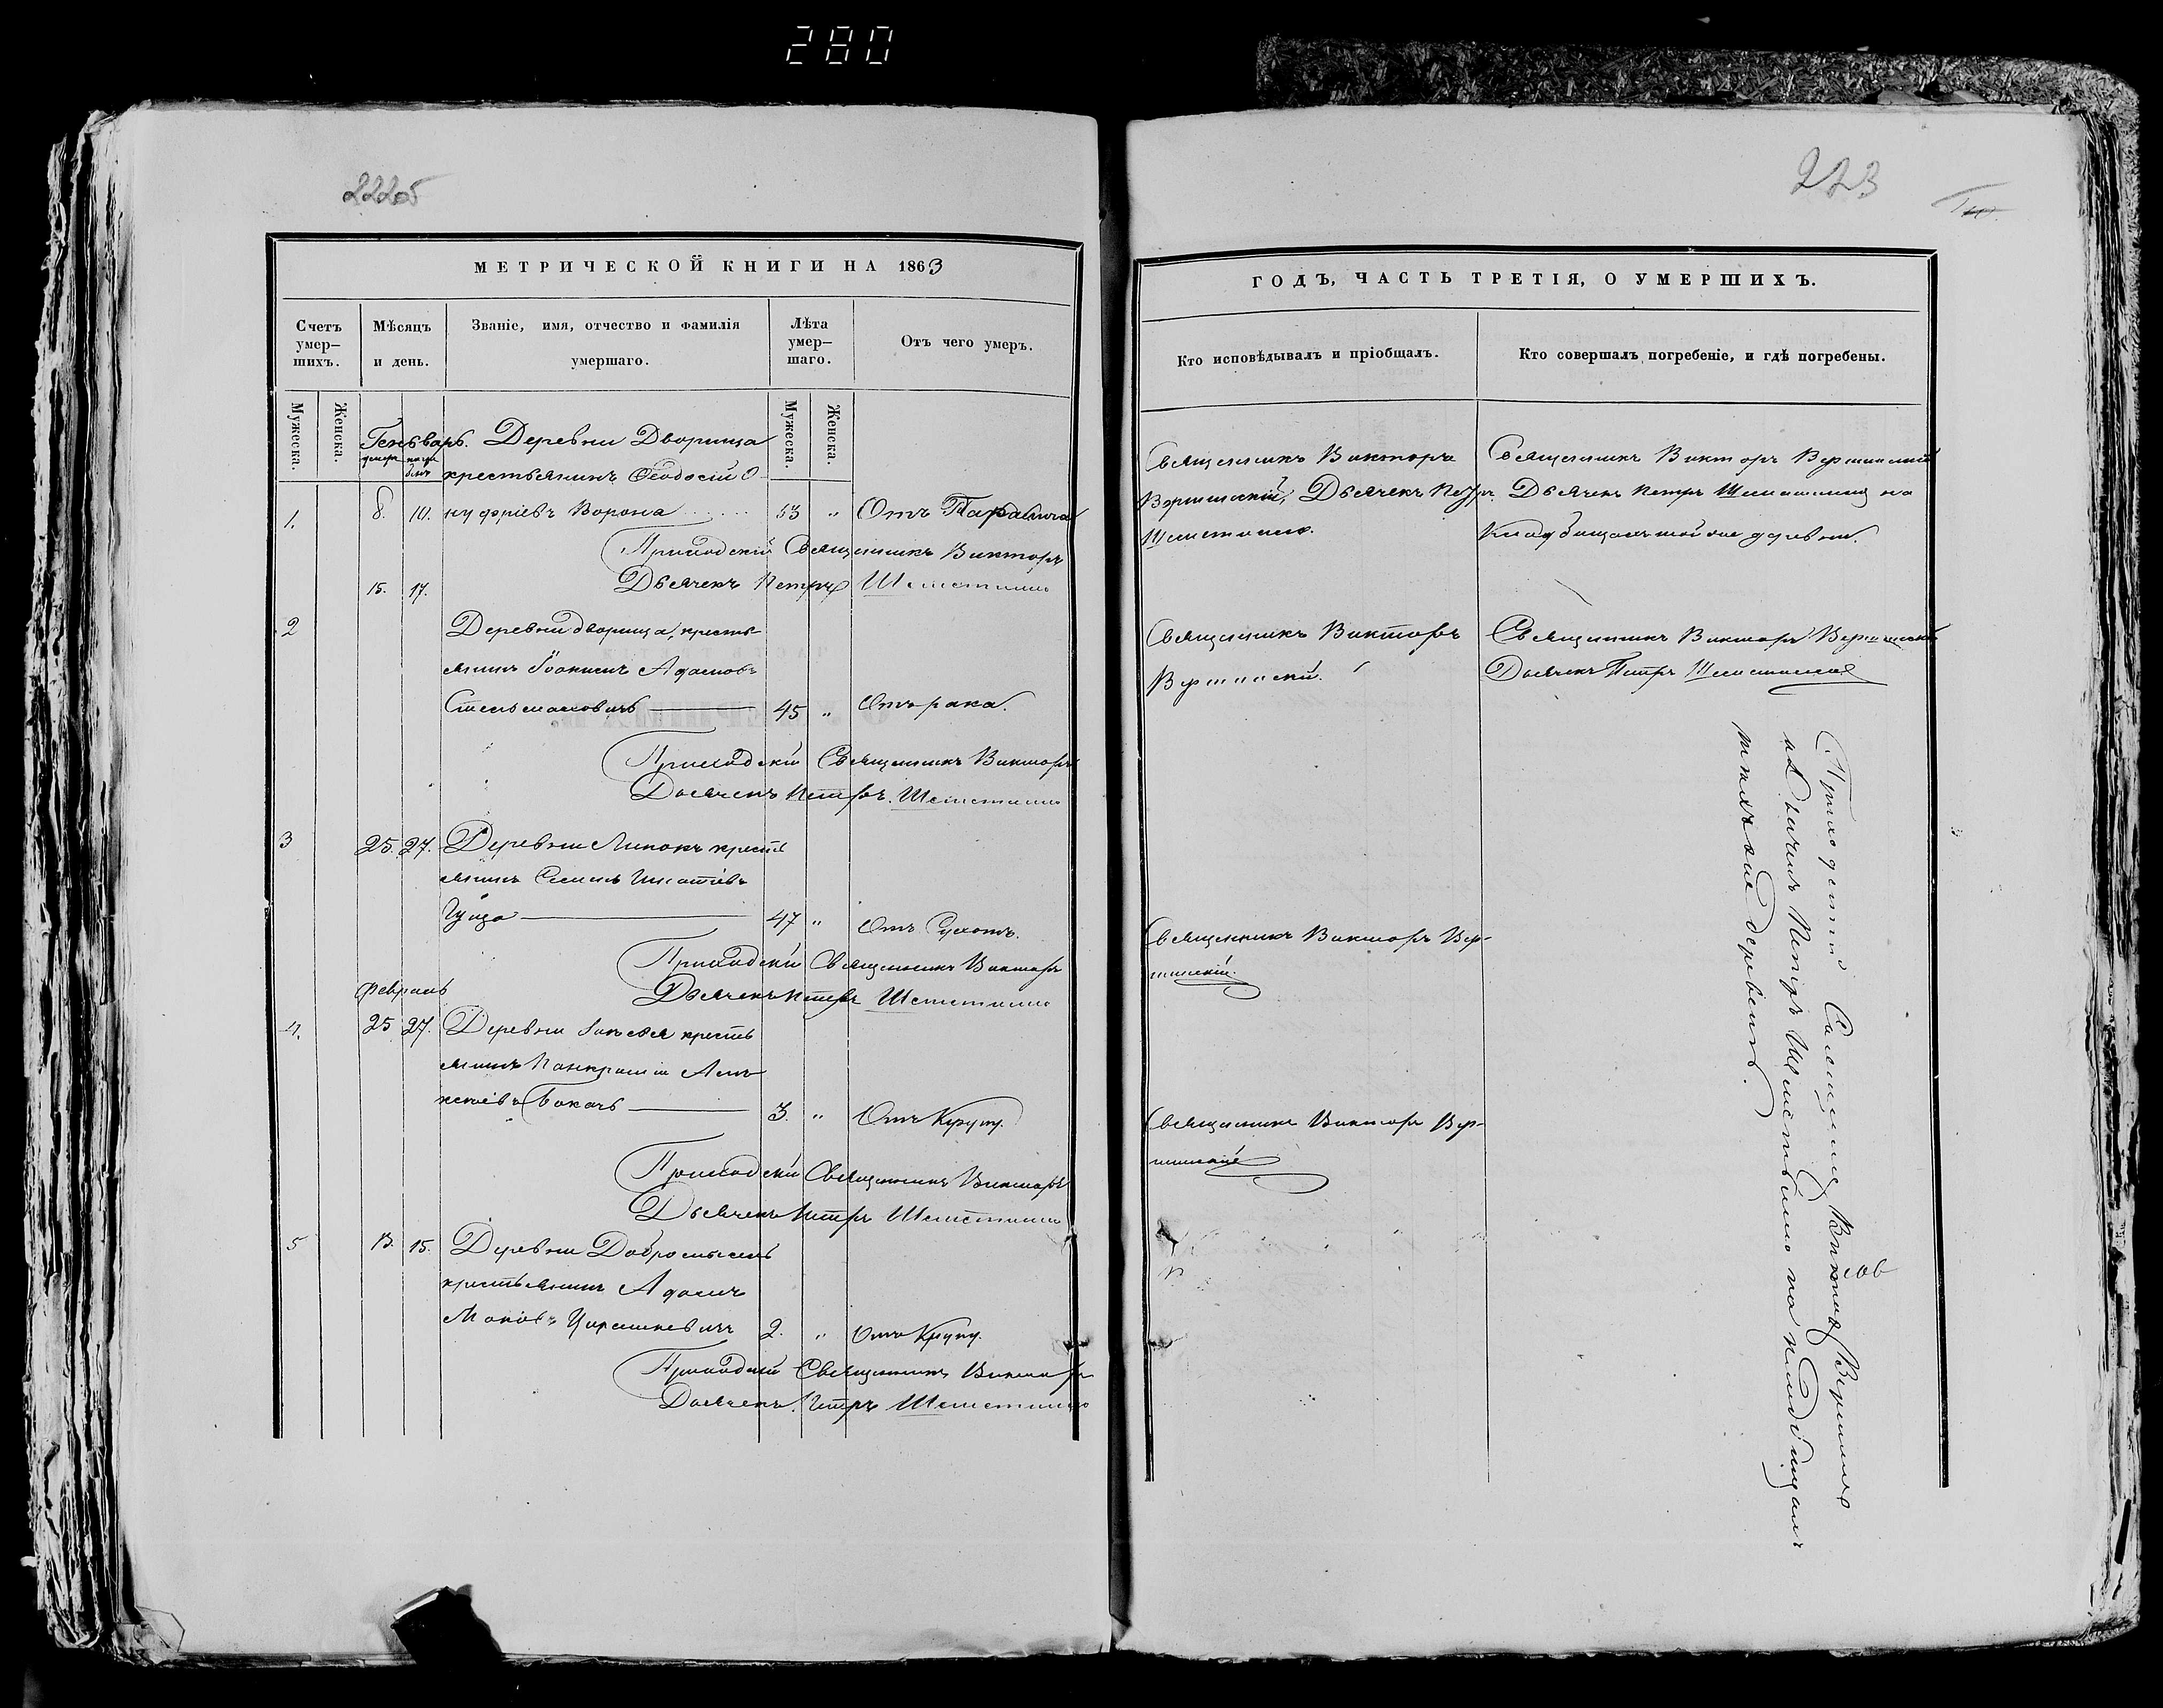 280
222об
223
МЕТРИЧЕСКОЙ КНИГИ НА 1863
Счетъ умер-шихъ.
Мѣсяцъ и день.
Званіе, имя, отчество и фамилія умершаго.
Лѣта умер-шаго.
Отъ чего умеръ.
Мужеска.
Женска.
Мужеска.
Женска.
Генварь. Деревни Дворища
крестьянинъ Ѳеодосій О-
1. 8. 10. нуфріевъ Ворона 53 " Отъ Паралича
Приходскій Священникъ Викторъ
Дьячекъ Петръ
15. 17.
2 Деревни Дворища, кресть-
янинъ Іоаннъ Адамовъ
45 " Отъ рака.
Приходскій Священникъ Викторъ
Дьячекъ Петръ
3 25. 27. Деревни Липокъ кресть
янинъ Семенъ Игнатіевъ
47 " Отъ Сухотъ.
Приходскій Священникъ Викторъ
Дьячекъ Петръ
Февраль
4. 25 27. Деревни кресть
янинъ Панкратій Але-
ксѣевъ Бокачь 3. " Отъ Крупу.
Приходскій Священникъ Викторъ
Дьячекъ Петръ
5 13. 15. Деревни Добромысль
крестьянинъ Адамъ
2. " Отъ Крупу.
Приходскій Священникъ Викторъ
Дьячекъ Петръ
ГОДЪ, ЧАСТЬ ТРЕТІЯ, О УМЕРШИХЪ.
Кто исповѣдывалъ и пріобщалъ.
Кто совершалъ погребеніе, и гдѣ погребены.
Священникъ Викторъ
Вершинскій, Дьячекъ Петръ
Священникъ Викторъ Вершинскій
Дьячекъ Петръ на
Кладбищѣ той же деревни.
Священникъ Викторъ
Вершинскій.
Священникъ Викторъ Вершинскій
Дьячекъ Петръ
Священникъ Викторъ Вер-
шинскій.
Священникъ Викторъ Вер-
шинскій
Приходскій Священникъ Викторъ Вершинскій
Дьячекъ Петръ на кладбищахъ
тѣхъ же деревень.